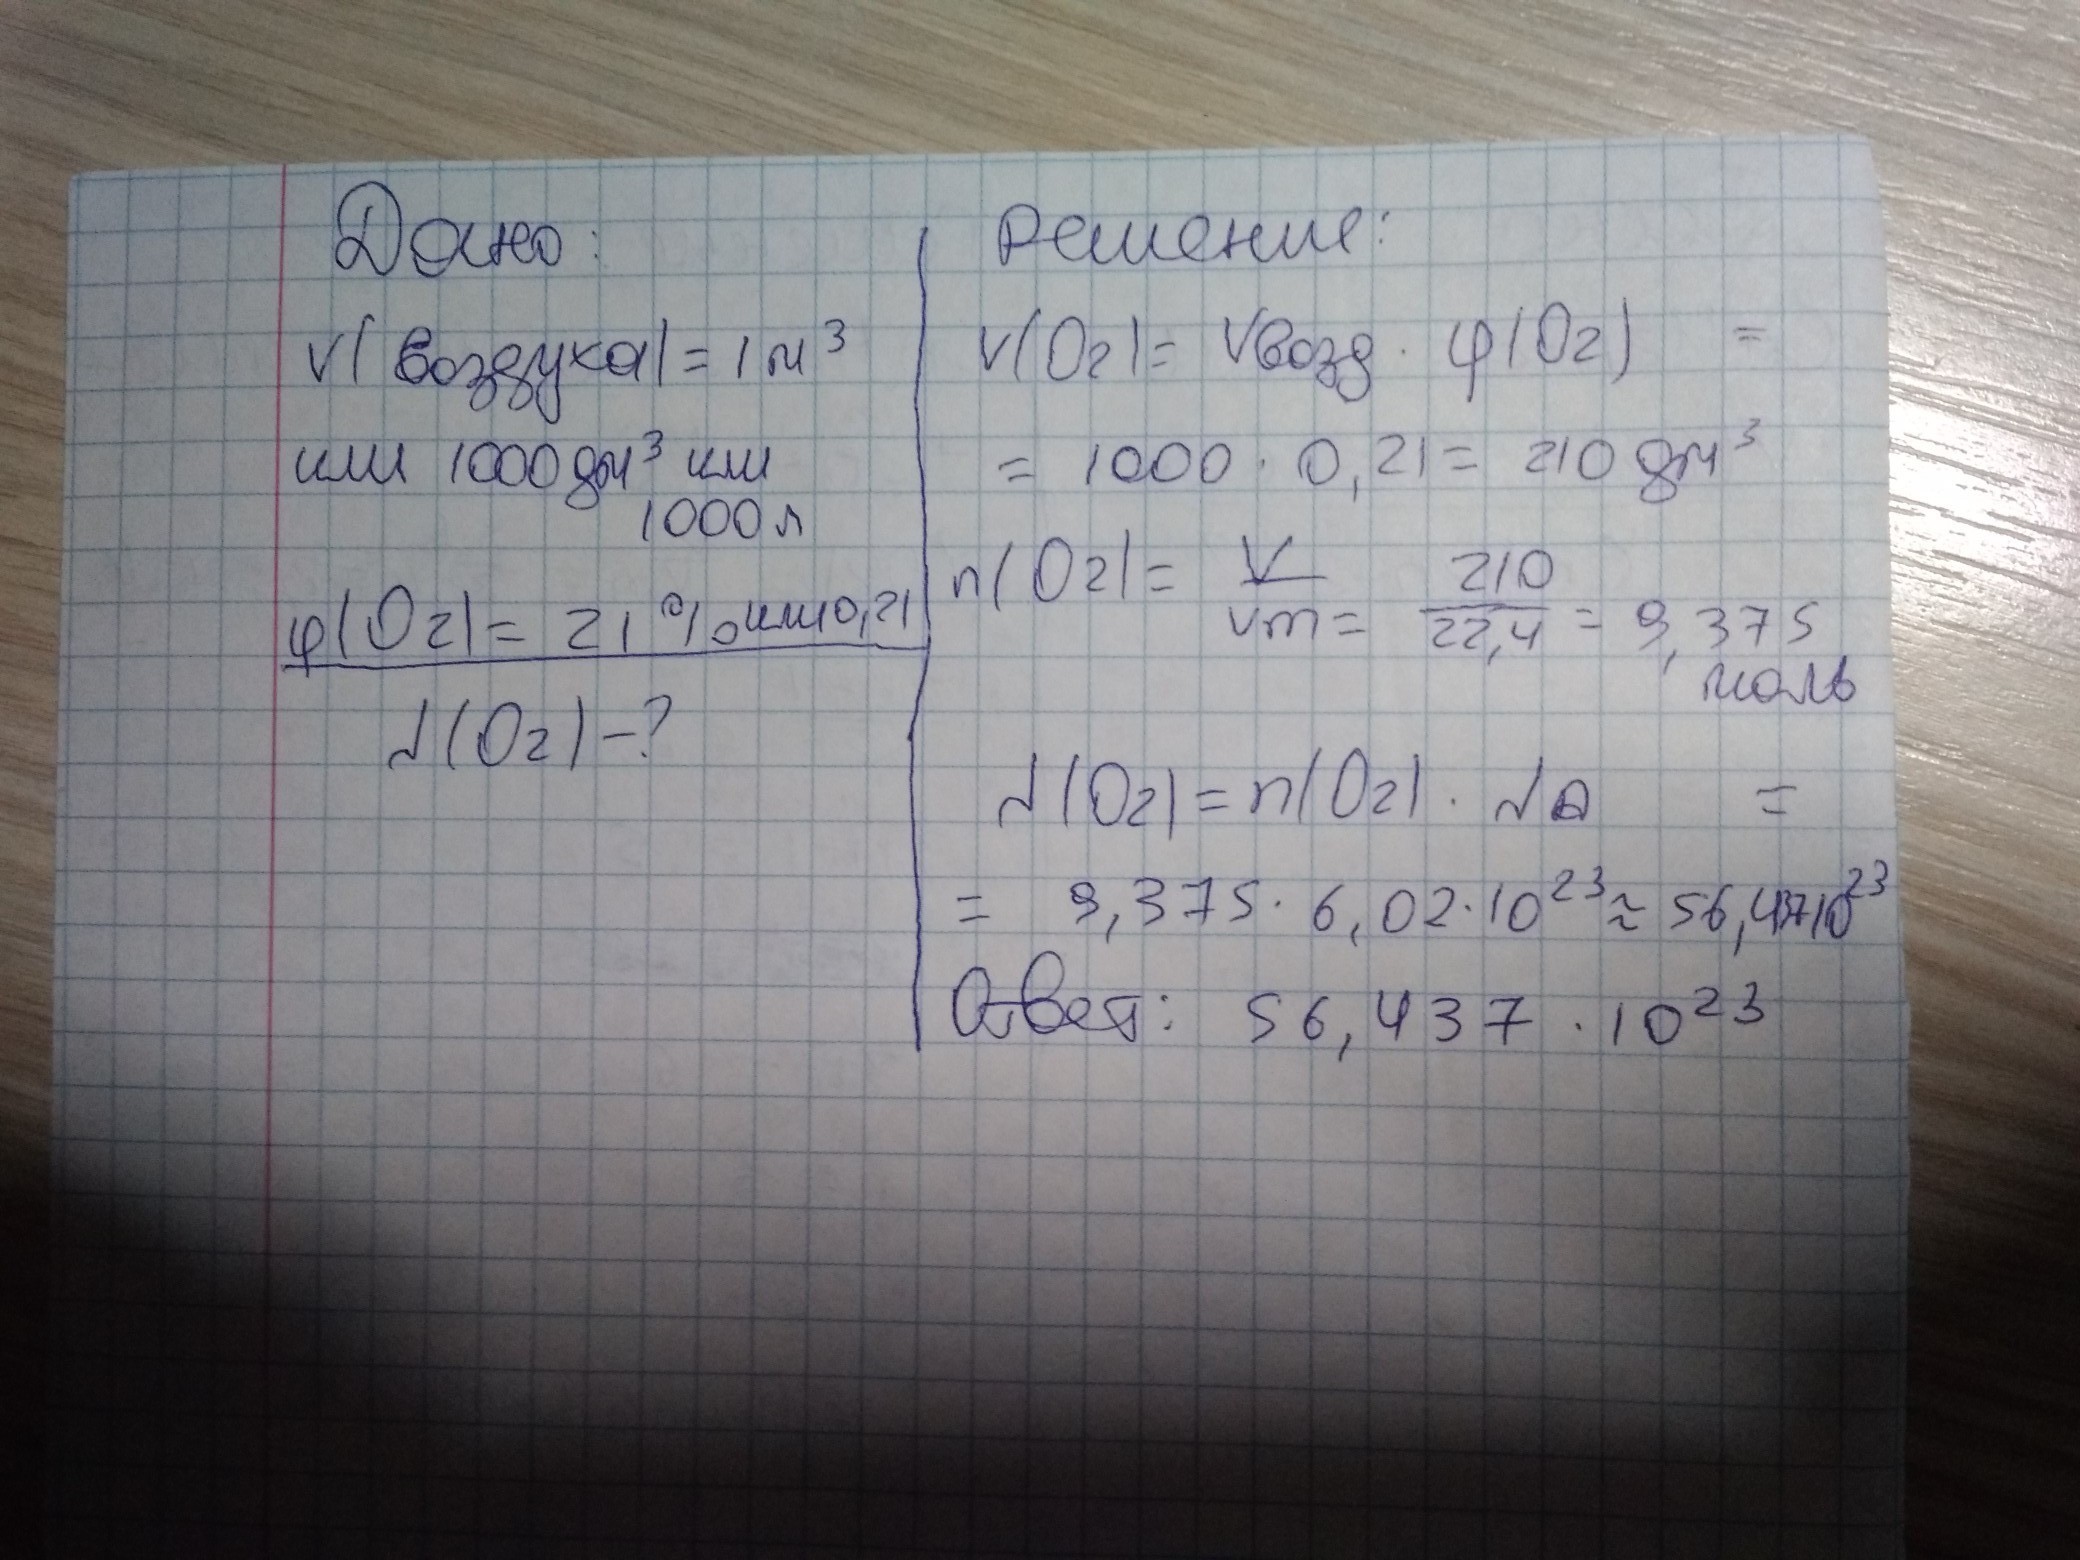 Дано:
V(воздуха)=1м³
или 1000дм³ или
1000л
φ(O₂)= 21% или 0,21
N(O₂)-?
Решение:
V(O₂)= Vвозд · φ(O₂) =
= 1000 · 0,21= 210 дм³
n(O₂)= V/Vm = 210/22,4 = 9,375
моль
N(O₂)=n(O₂) · NA =
= 9,375 · 6,02 · 10²³ ≈ 56,437·10²³
Ответ: 56,437 · 10²³